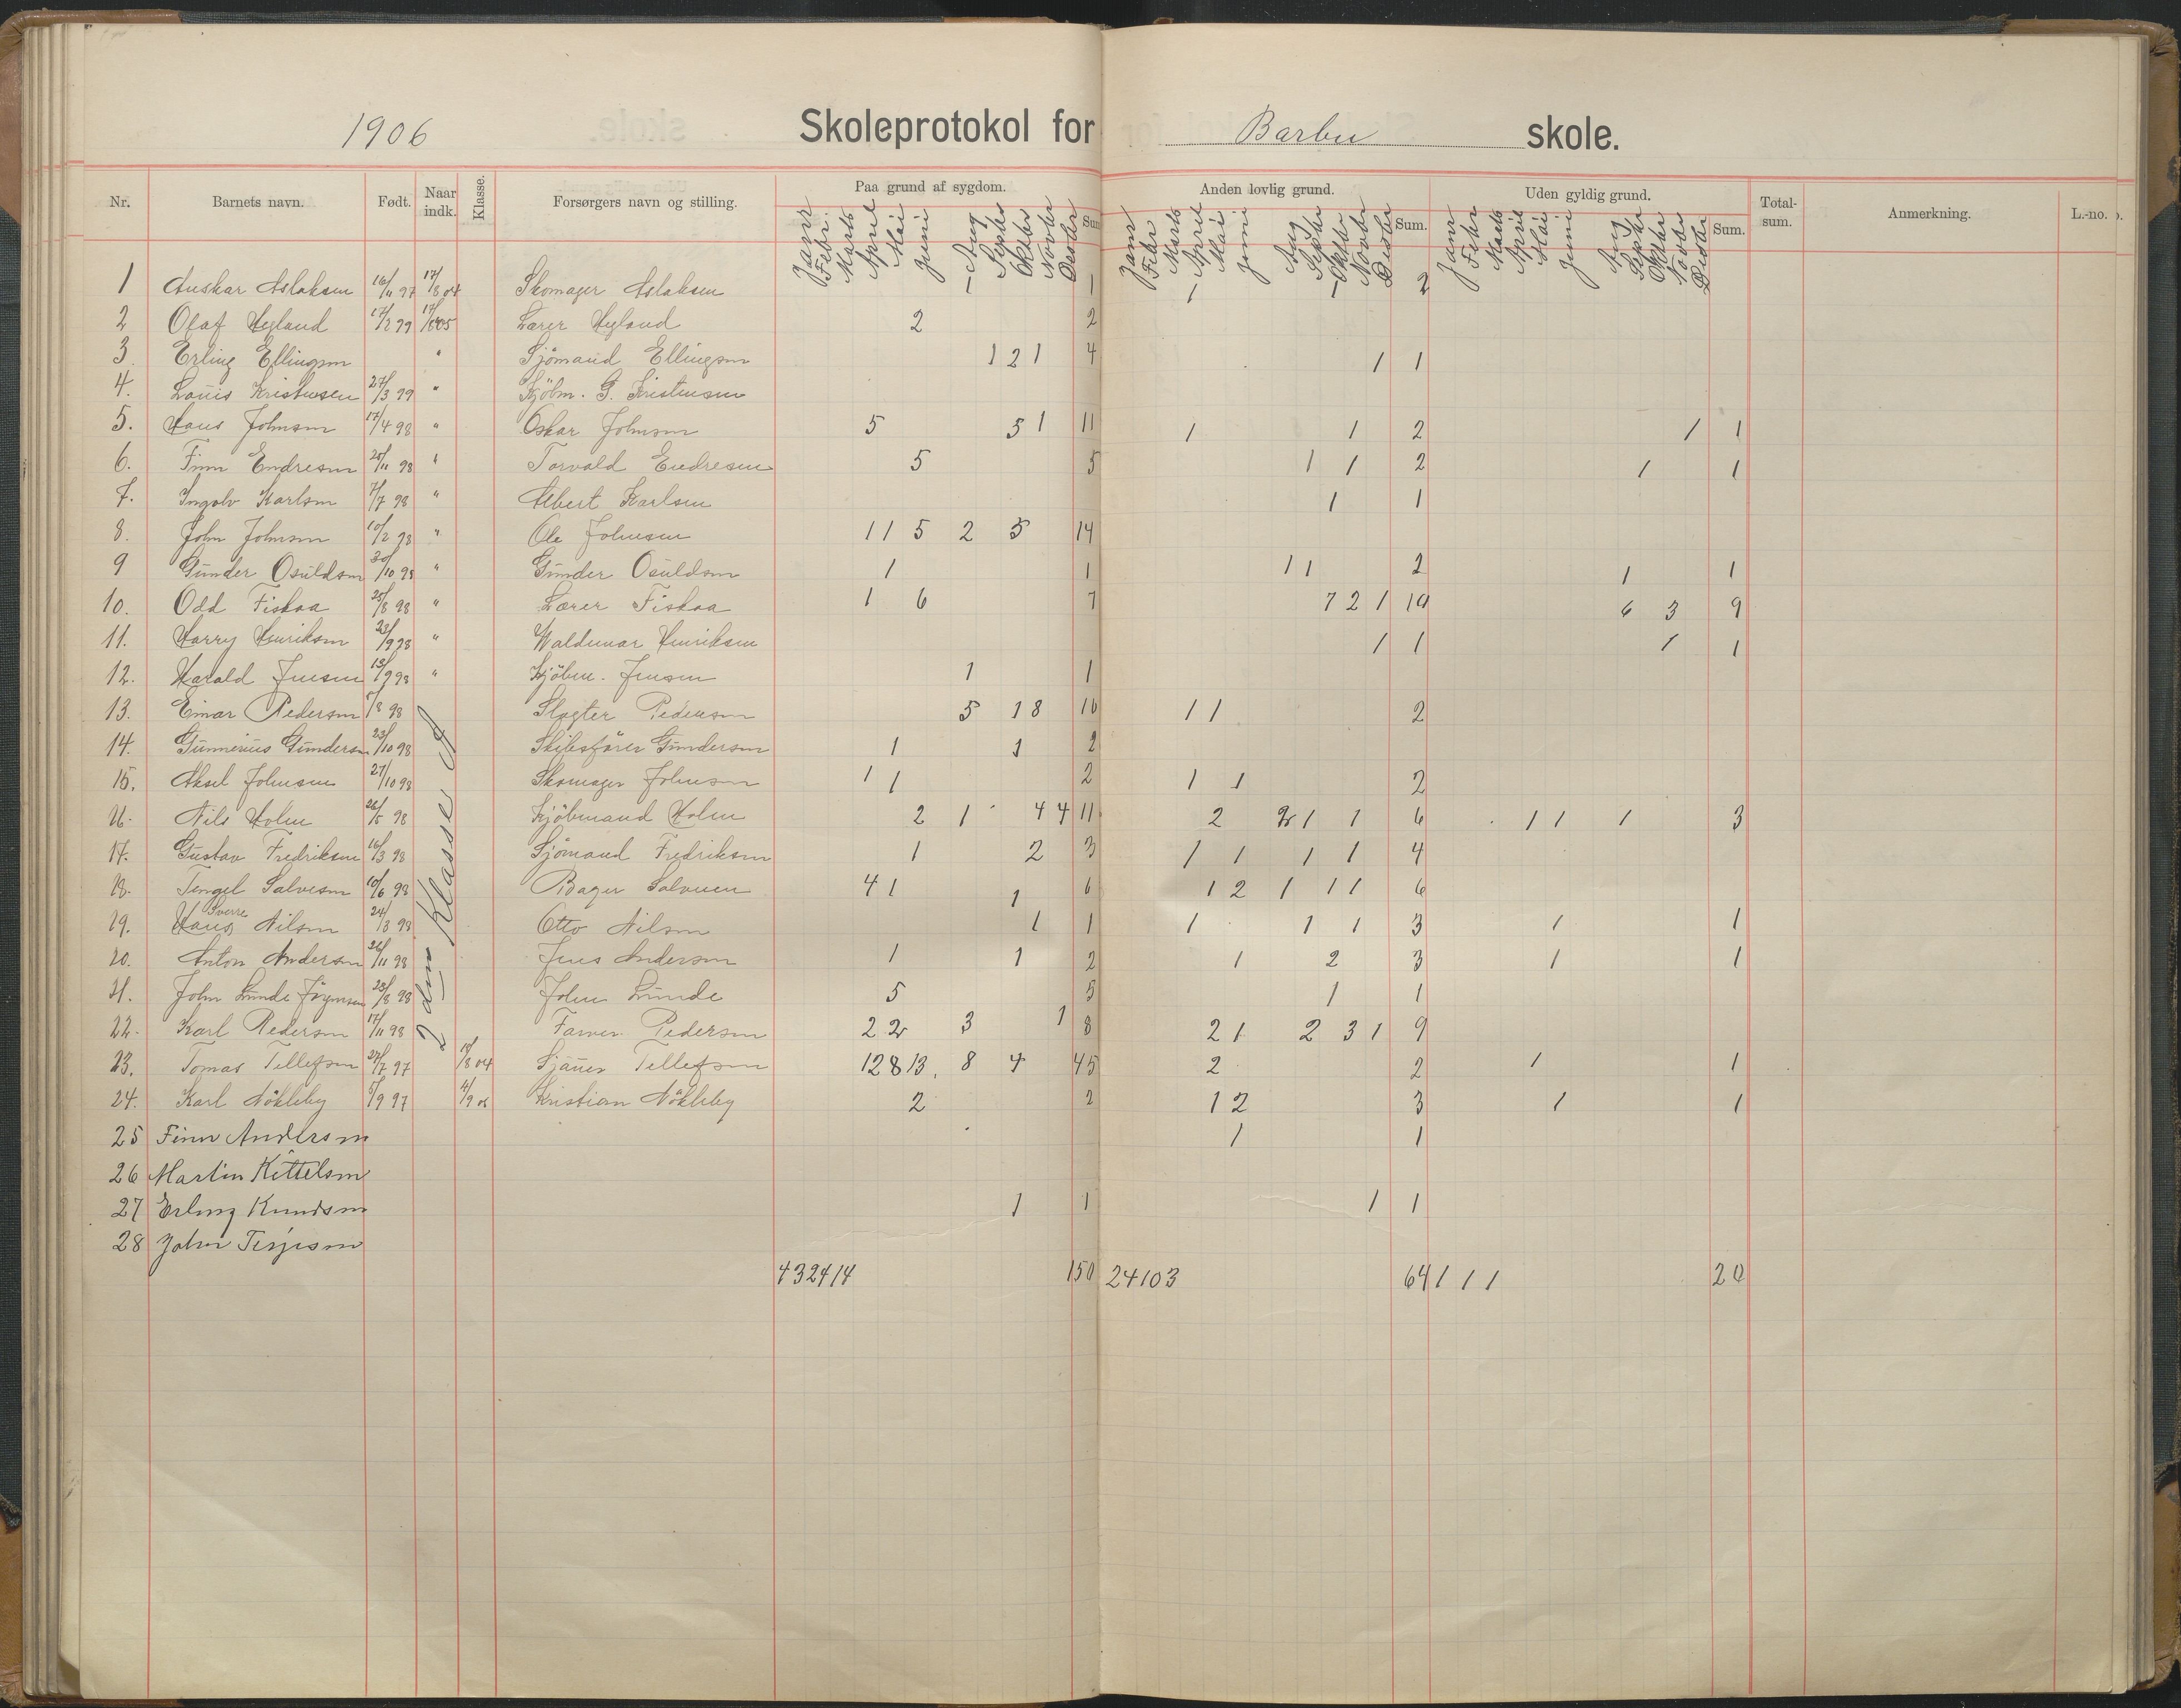 1906 Skoleprotokol for Barbu skole.
Nr. Barnets navn. Født. Naar indk. Klasse. Forsørgers navn og stilling. Paa grund af sygdom. Anden lovlig grund. Uden gyldig grund. Total-sum. Anmerkning. L.-no.
Janr Febr. Marts April Mai Juni Aug Septbr Oktbr Novbr Desbr Sum Janr Febr Marts April Mai Juni Aug Septbr Oktbr Novbr Desbr Sum. Janr Febr Marts April Mai Juni Aug Septbr Oktbr Novbr Desbr Sum.
1 Anskar Aslaksen 16/11 97 17/8 04 Skomager Aslaksen 1 1 1 1 2
2 Olaf Hyland 17/2 99 17/8 05 Lærer Hyland 2 2
3. Erling Ellingsen " Sjømand Ellingsen 1 2 1 4 1 1
4. Louis Kristensen 27/3 99 " Kjøbm. G. Kristensen
5. Hans Johnsen 17/4 98 " Oskar Johnsen 5 5 1 11 1 1 2 1 1
6. Finn Endresen 25/11 98 " Torvald Endresen 5 5 1 1 2 1 1
7. Ingolv Karlsen 7/7 98 " Albert Karlsen 1 1
8. John Johnsen 10/2 98 " Ole Johnsen 1 1 5 2 5 14
9 Gunder Osuldsen 30/10 98 " Gunder Osuldsen 1 1 1 1 2 1 1
10. Odd Fiskaa 25/8 98 " Lærer Fiskaa 1 6 7 7 2 1 10 6 3 9
11. Harry Henriksen 23/9 98 " Waldemar Henriksen 1 1 1 1
12. Harald Jensen 13/9 98 " Kjøbm. Jensen 1 1
13. Einar Pedersen /8 98 Slagter Pedersen 5 1 8 1 1 2
14. Gunnerius Gundersen 23/10 98 Skibsfører Gundersen 1 1 2
15. Aksel Johnsen 27/10 98 Skomager Johnsen 1 1 2 1 1 2
16. Nils Holm 26/5 98 Kjøbmand Holm 2 1 4 4 11 2 2 1 1 6 1 1 1 3
17. Gustav Fredriksen 16/3 98 Sjømand Fredriksen 1 2 3 1 1 1 1 4
18. Tengel Salvesen 10/6 98 Bager Salvesen 4 1 1 6 1 2 1 1 1 6
19. Hans Sverre Nilsen 24/3 98 Otto Nilsen 1 1 1 1 1 3 1 1
20. Anton Andersen 26/11 98 Jens Andersen 1 1 2 1 2 3 1 1
21. John Lunde Jørgensen 28/8 98 John Lunde 5 5 1 1
22. Karl Pedersen 17/11 98 Pedersen 2 2 3 1 8 2 1 2 3 1 9
2 den Klasse A
23. Tomas Tellefsen 27/7 97 /8 04 Sjauer Tellefsen 12 8 13 8 4 45 2 2 1 1
24. Karl Nøkleby 5/9 97 4/9 05 Kristian Nøkleby 2 2 1 2 3 1 1
25 Finn Andersen 1 1
26 Martin Kittelsen
27 Erling Knudsen 1 1 1 1
28 John Terjesen
4 32 4 14 150 2 4 10 3 64 1 1 1 20